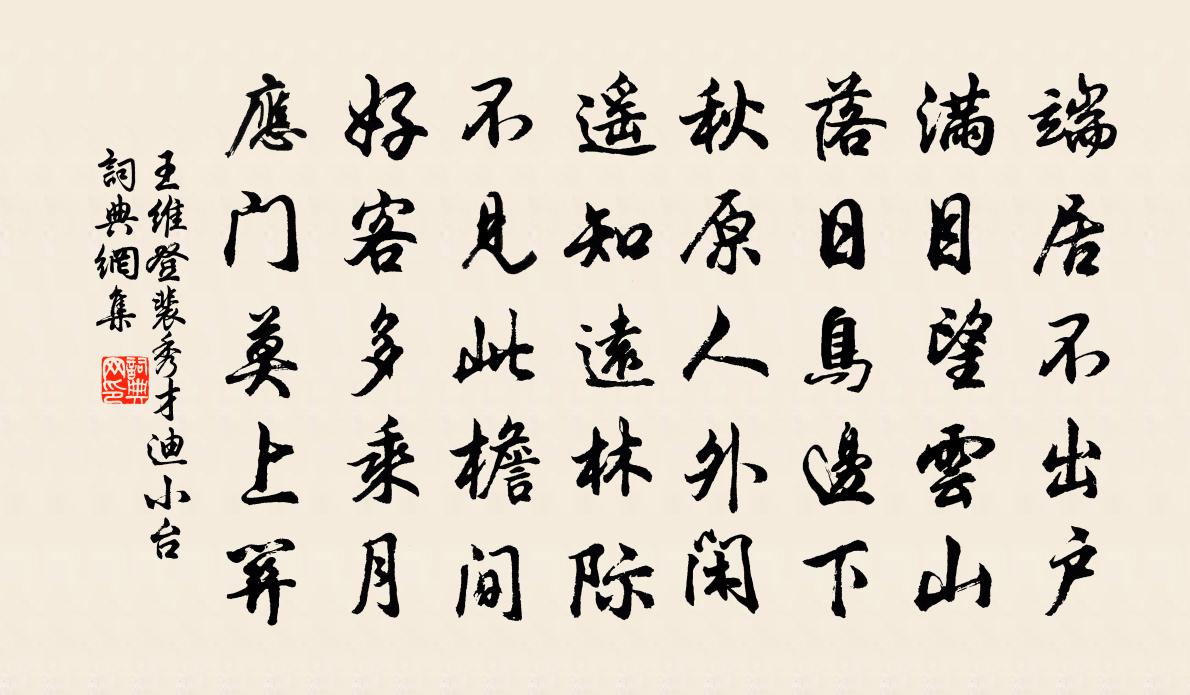 端居不出户
满目望雲山
落日鳥邊下
秋原人外闲
遥知遠林际
不見此檐间
好客多乘月
應门莫上關
王维登裴秀才迪小台
詞典網集
詞典网印